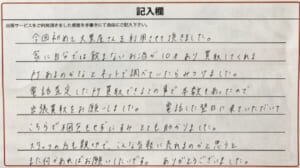 記入欄
出張サービスをご利用頂きましたご感想を手書きにてご自由にご記入下さい。
今回初めて大黒屋さんを利用させて頂きました。
家に自分では飲まないお酒が10本あり買取してくれる
所あるのかなとネットで調べていたらみつけました。
電話査定した所買取できるとの事で本数もあったので
出張買取をお願いしました。電話した翌日に来ていただいて
こちらも日程をせずにすみとても助かりました。
スタッフの方も親切で、こんな気軽に売れるのかと思うと
また何かあればお願いしたいです。ありがとうございました。